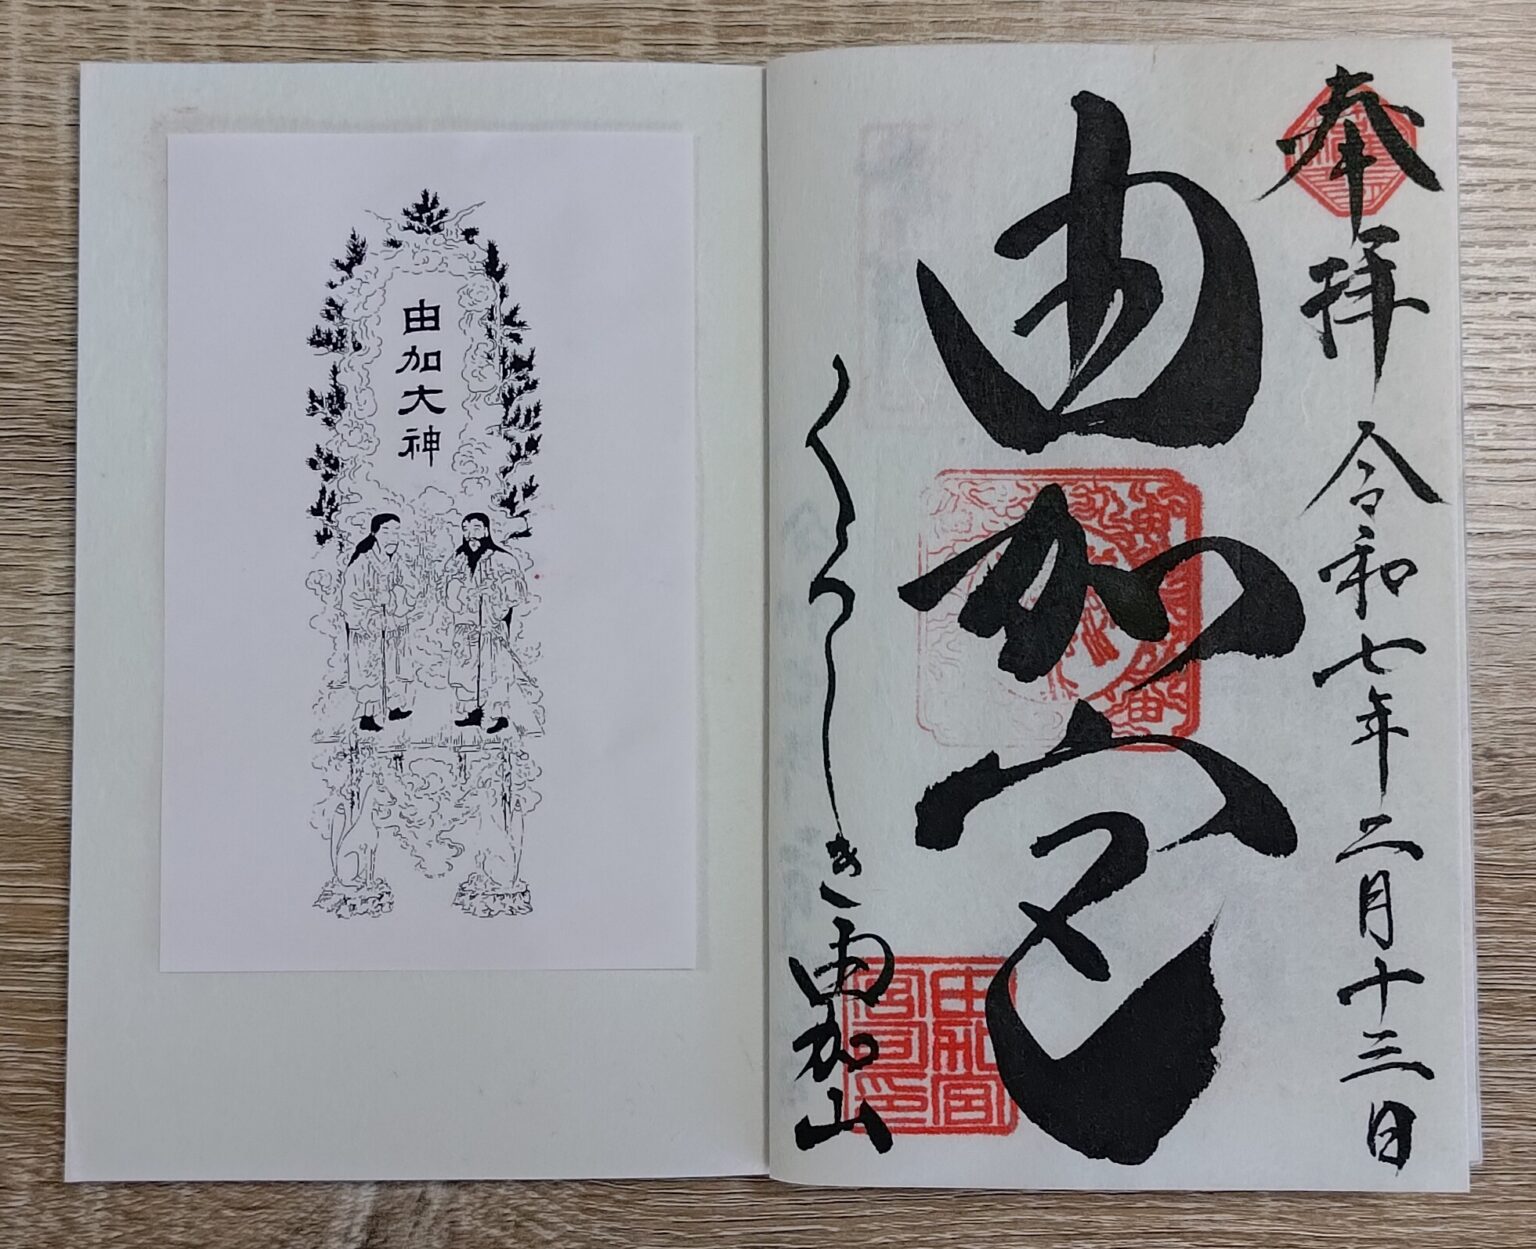 奉拝 令和七年二月十三日
由加宮
くらしき由加山
由加大神